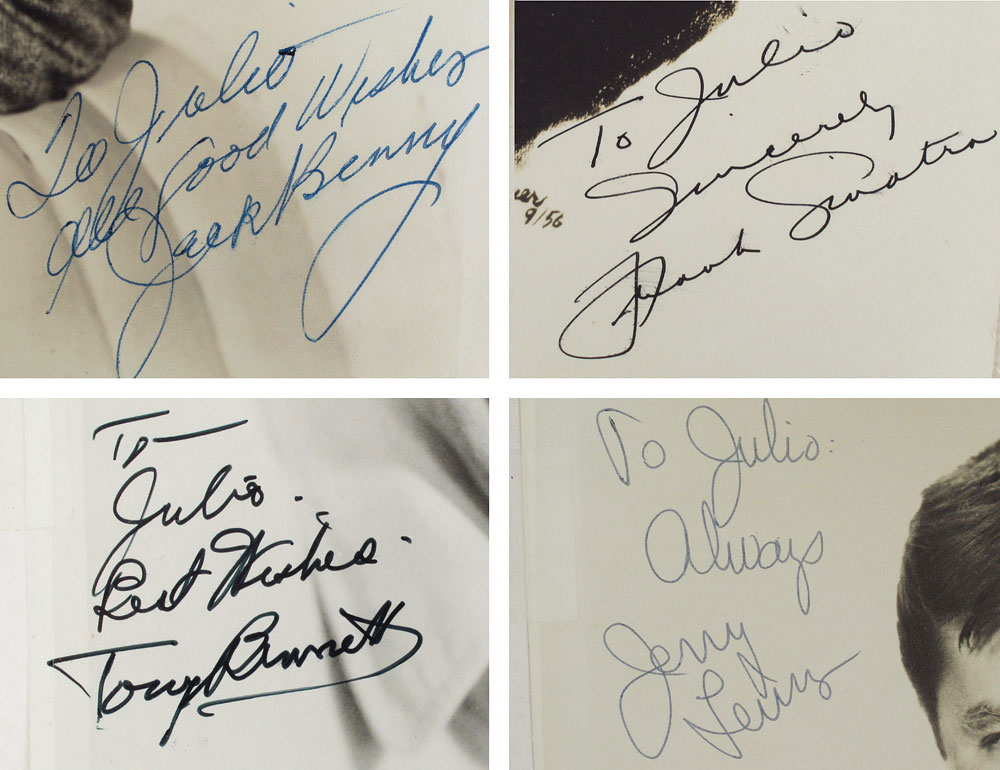 To Julio
All Good Wishes
Jack Benny
To Julio
Sincerely
Frank Sinatra
9/56
To
Julio.
Best Wishes.
Tony Bennett
To Julio:
Always
Jerry
Lewis